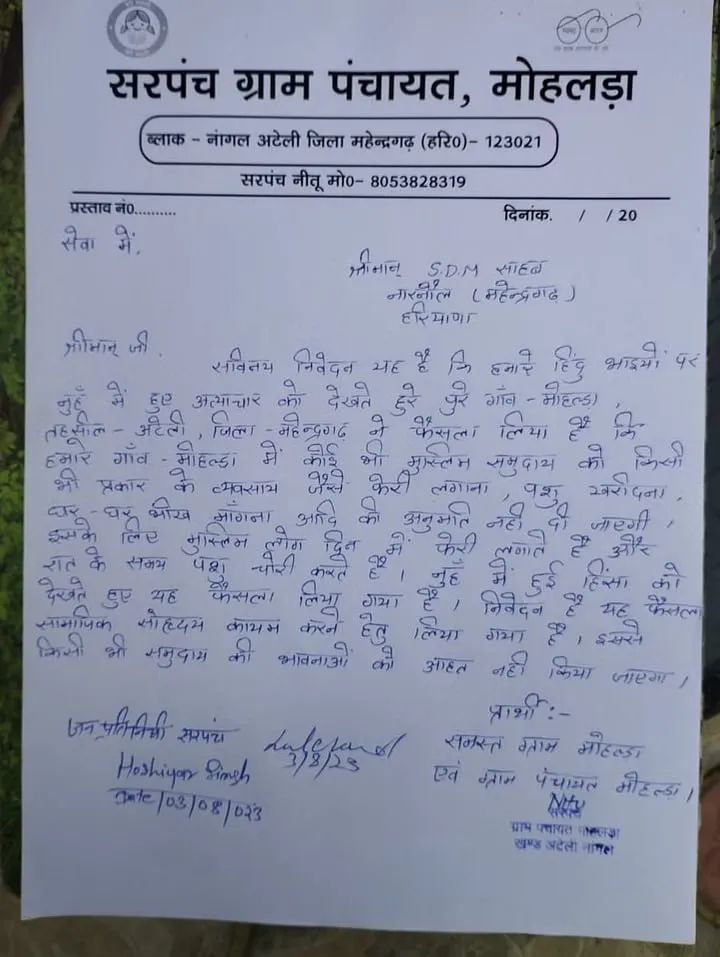 सरपंच ग्राम पंचायत, मोहलड़ा
ब्लाक - नांगल अटेली जिला महेन्द्रगढ़ (हरि0)- 123021
सरपंच नीतू मो0- 8053828319
प्रस्ताव नं0..........
दिनांक. / / 20
सेवा में,
श्रीमान् S.D.M साहब
नारनौल (महेन्द्रगढ़)
हरियाणा
श्रीमान् जी,
सविनय निवेदन यह है कि हमारे हिंदु भाइयों पर
नुहँ में हुए अत्याचार को देखते हुरे पुरे गाँव - मोहल्डा,
तहसील - अटेली, जिला - महेन्द्रगढ़ ने फैसला लिया है कि
हमारे गाँव - मोहल्डा में कोई भी मुस्लिम समुदाय को किसी
भी प्रकार के व्यवसाय जैसे फेरी लगाना, पशु खरीदना,
घर - घर भीख माँगना आदि की अनुमति नही दी जाएगी,
इसके लिए मुस्लिम लोग दिन में फेरी लगाते है और
रात के समय पशु चोरी करते है। नुहँ में हुई हिंसा को
देखते हुए यह फैसला लिया गया है। निवेदन है यह फैसला
सामाजिक सोहदय कायम करने हेतु लिया गया है, इससे
किसी भी समुदाय की भावनाओं को आहत नही किया जाएगा,
प्रार्थी :-
जन प्रतिनिधी सरपंच
समस्त ग्राम मोहल्डा
3/8/23
Hoshiyar Singh
एवं ग्राम पंचायत मोहल्डा,
Date/03/08/023
सरपंच
ग्राम पंचायत मोहलड़ा
खण्ड अटेली नांगल